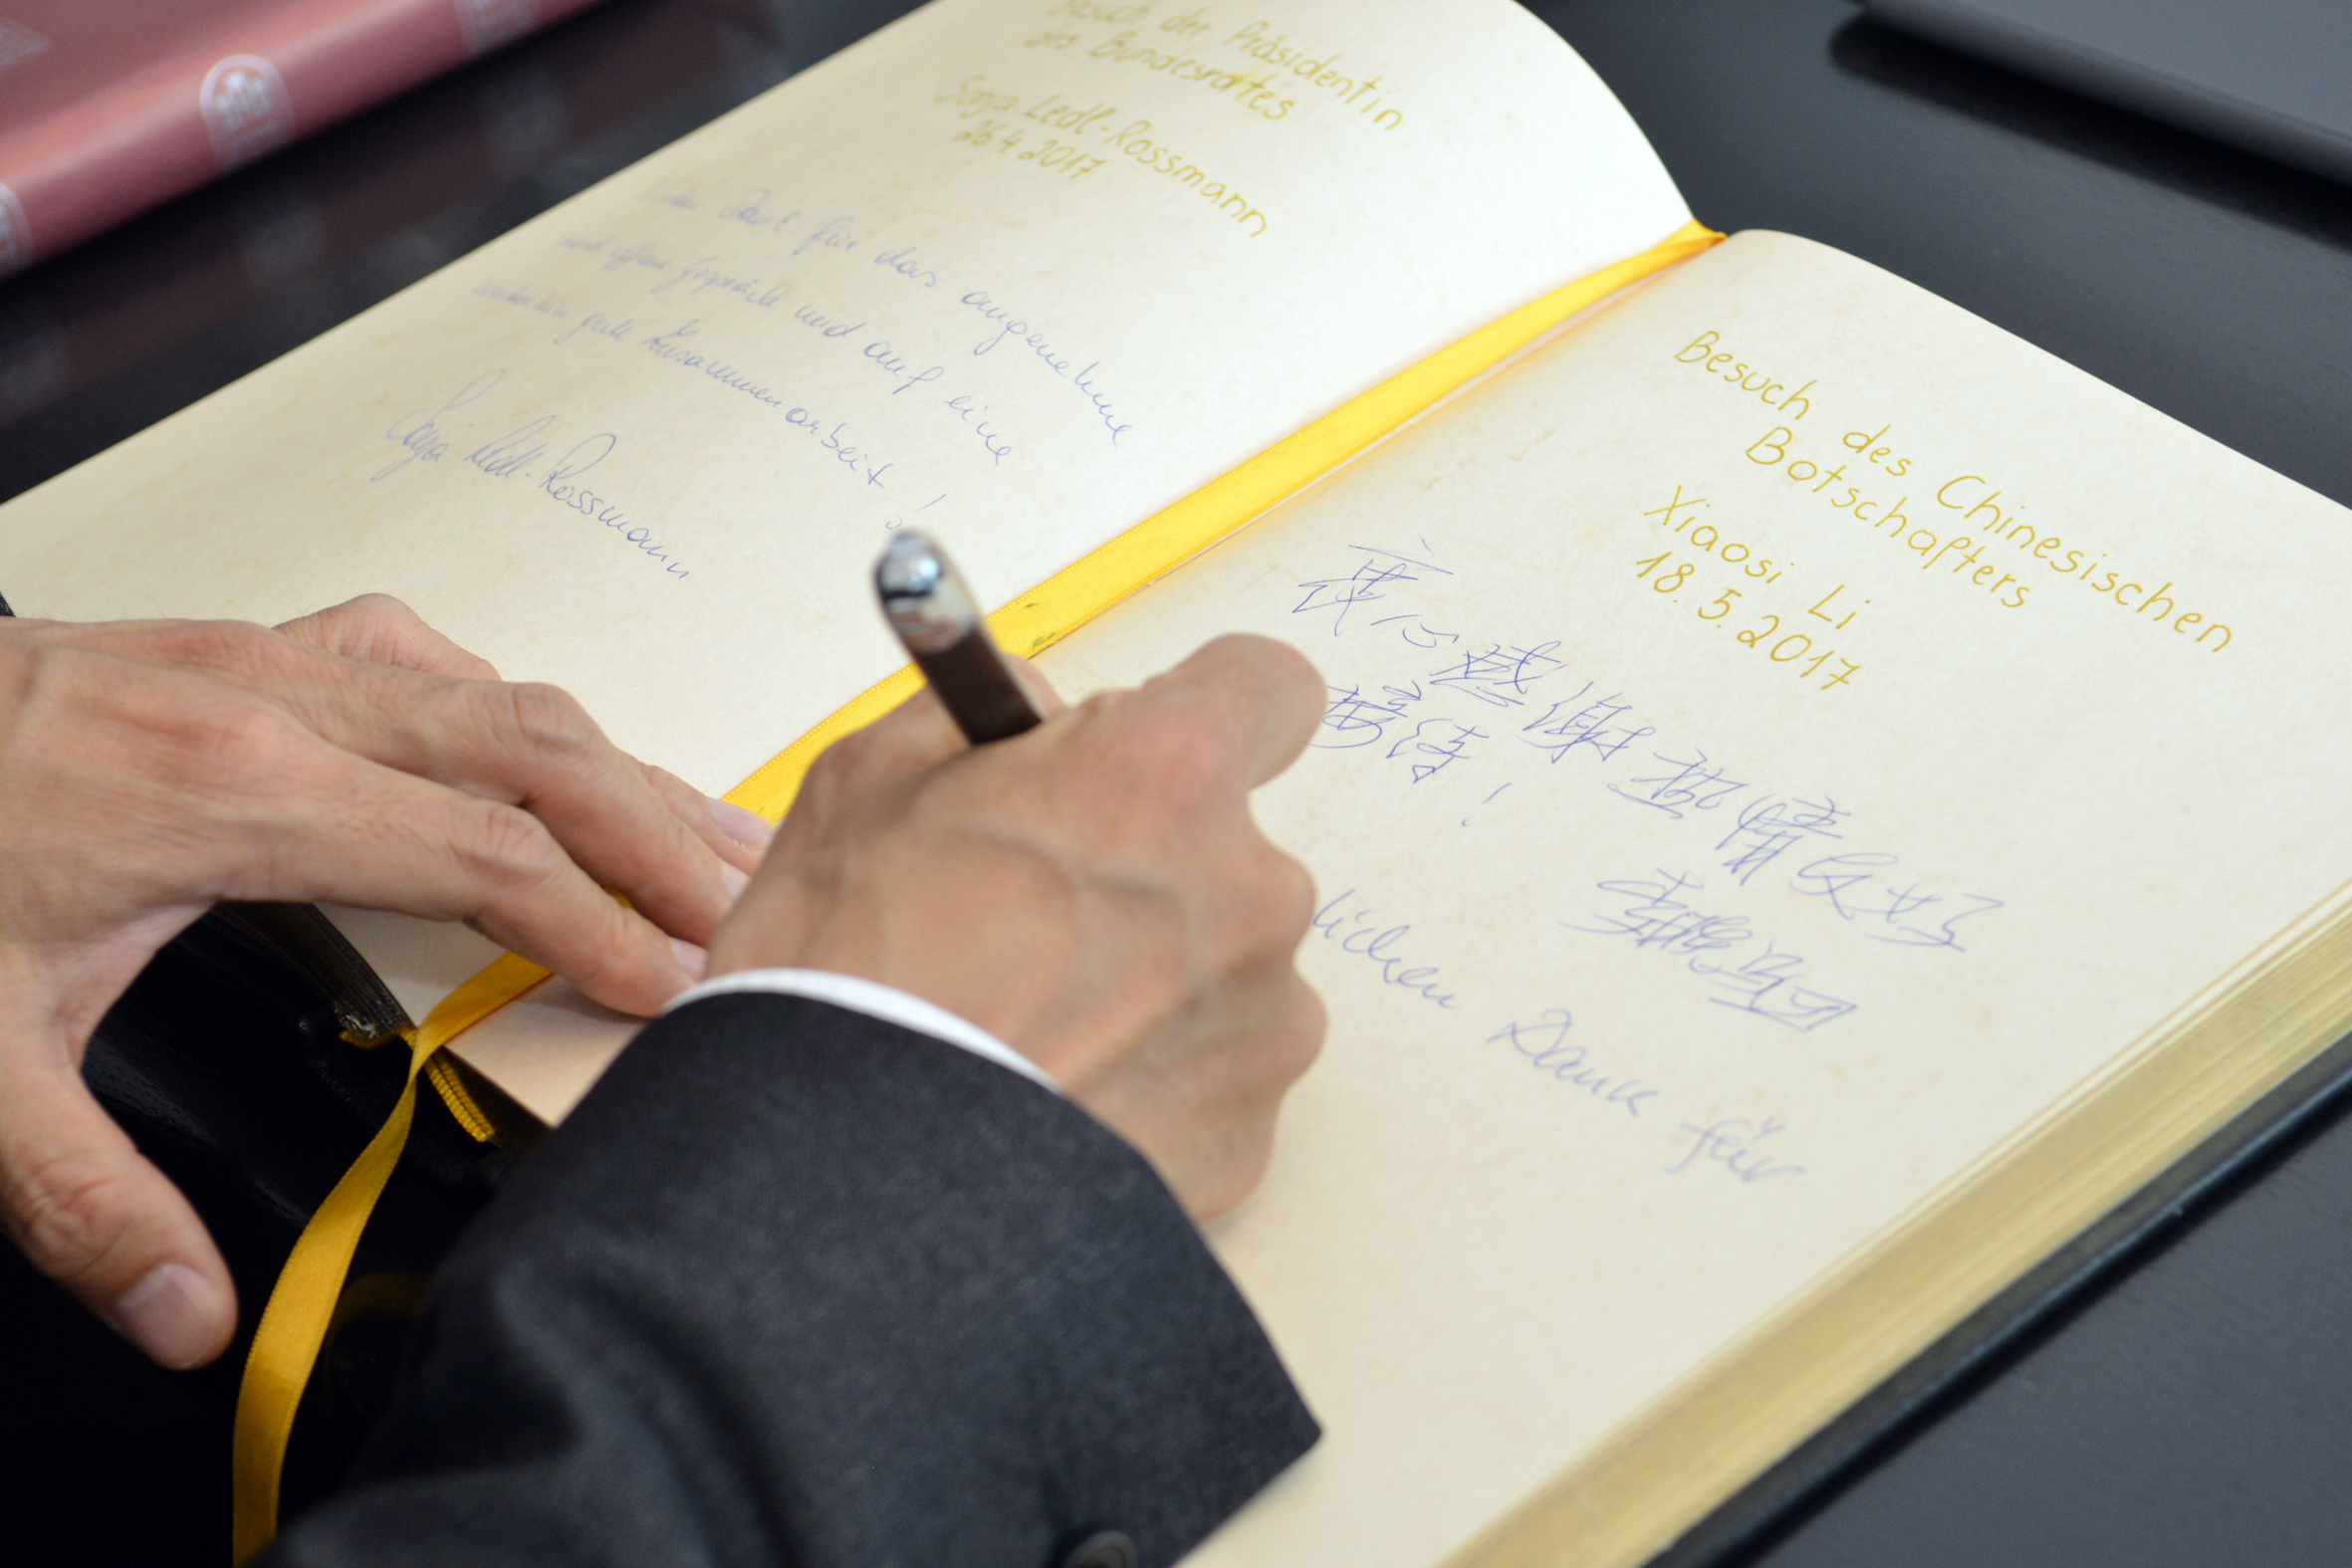 Besuch der Präsidentin
des Bundesrates
Sonja Ledl-Rossmann
26.4.2017
Vielen Dank für das angenehme
und offene Gespräch und auf eine
weiterhin gute Zusammenarbeit!
Sonja Ledl-Rossmann
Besuch des Chinesischen
Botschafters
Xiaosi Li
18.5.2017
衷心感谢热情友好
接待!
李晓驷
lichen Dank für